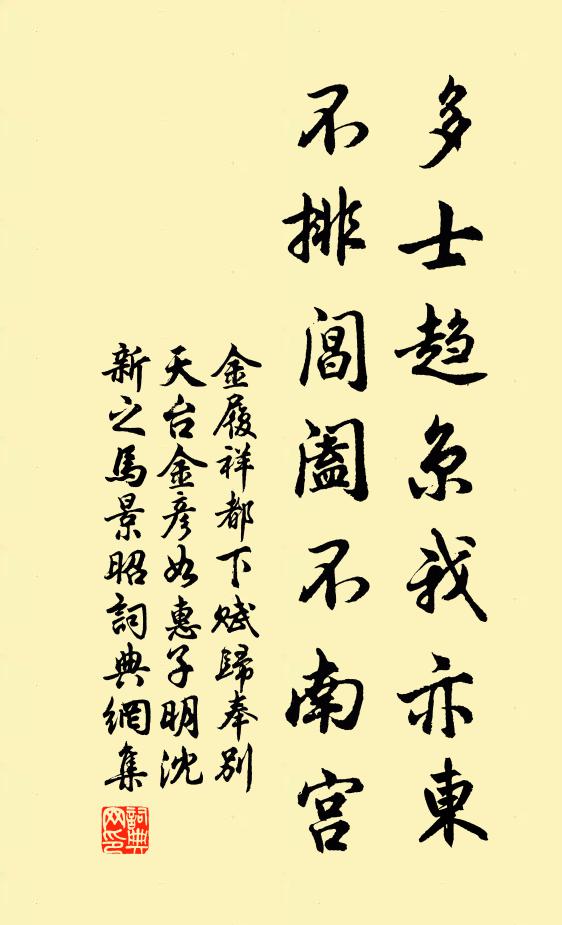 多士趋京我亦東
不排閶阖不南宫
金履祥都下赋歸奉别
天台金彦如惠子明沈
新之馬景昭詞典網集
詞典网印